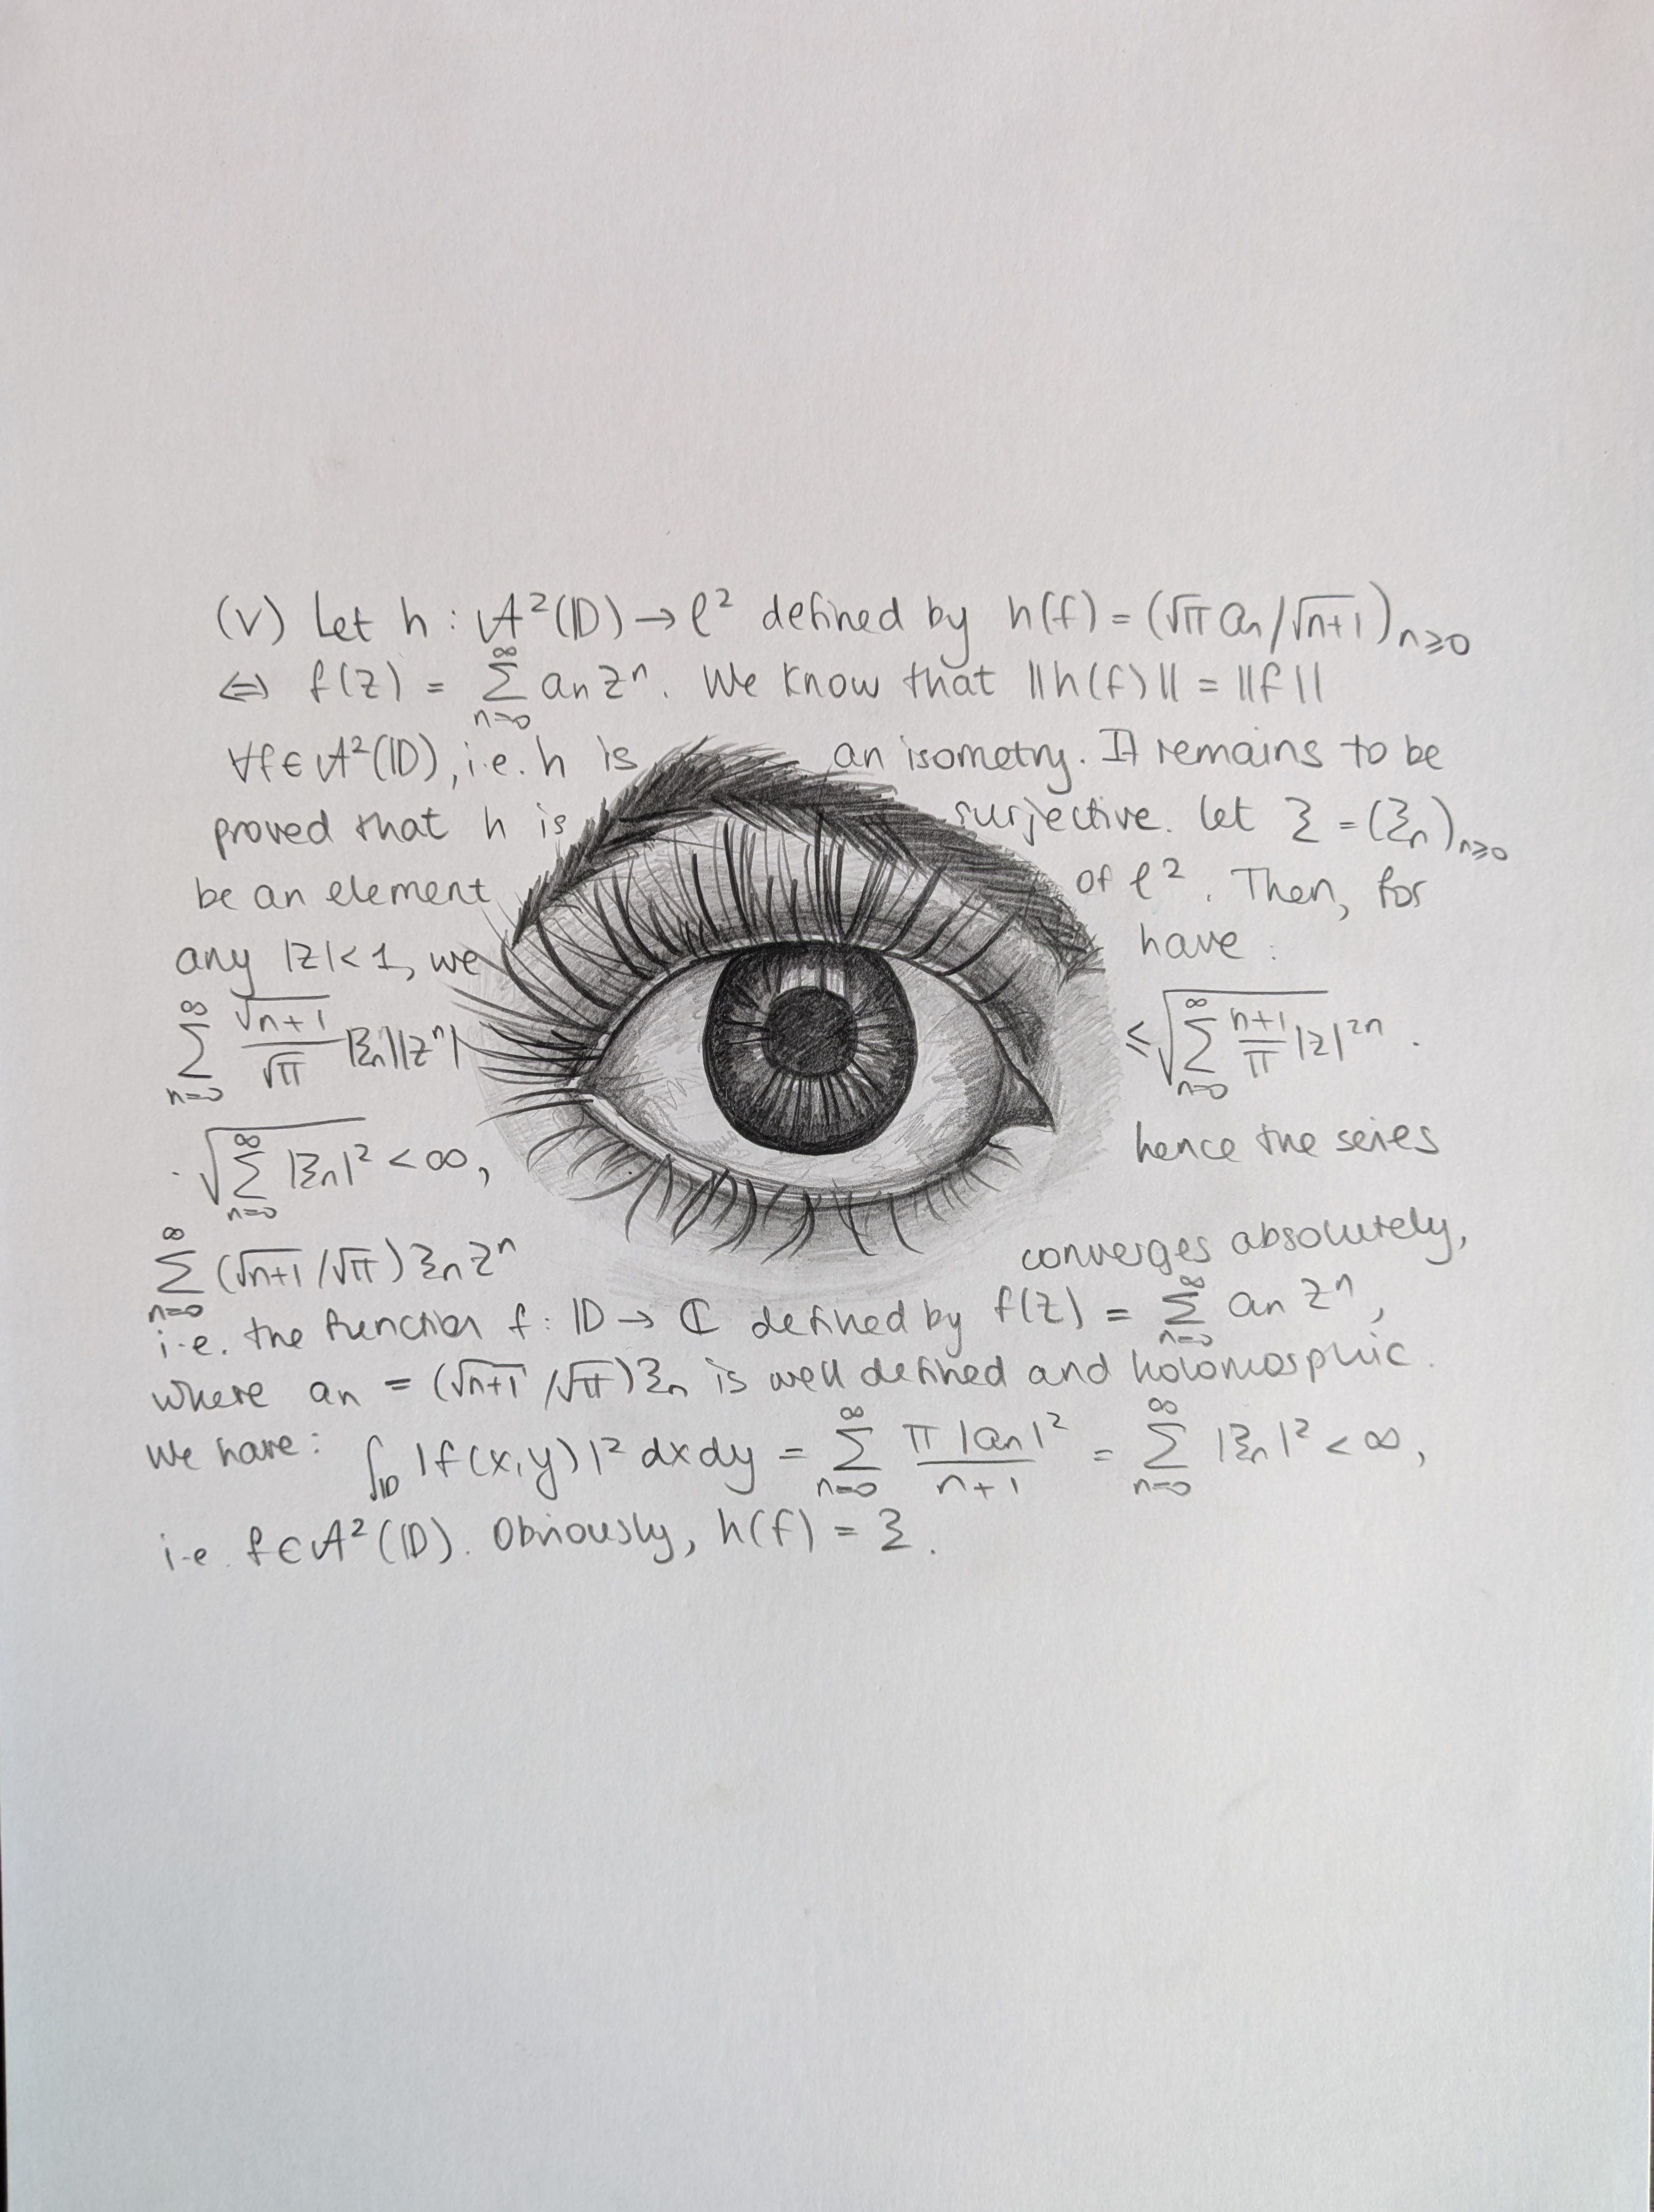 (V) Let h : A²(𝔻) → ℓ² defined by h(f) = (√π aₙ/√n+1)ₙ≥₀
⇔ f(z) = ∑ₙ₌₀^∞ aₙ zⁿ. We know that ||h(f)|| = ||f||
∀f ∈ A²(𝔻), i.e. h is an isometry. It remains to be
proved that h is surjective. Let ξ = (ξₙ)ₙ≥₀
be an element of ℓ². Then, for
any |z| < 1, we have :
∑ₙ₌₀^∞ (√(n+1)/√π) |ξₙ||zⁿ| ≤ √(∑ₙ₌₀^∞ ((n+1)/π) |z|²ⁿ) ·
· √(∑ₙ₌₀^∞ |ξₙ|²) < ∞, hence the series
∑ₙ₌₀^∞ (√(n+1)/√π) ξₙ zⁿ converges absolutely,
i.e. the function f : 𝔻 → ℂ defined by f(z) = ∑ₙ₌₀^∞ aₙ zⁿ,
where aₙ = (√(n+1)/√π) ξₙ is well defined and holomorphic.
We have: ∫_𝔻 |f(x,y)|² dxdy = ∑ₙ₌₀^∞ π|aₙ|²/(n+1) = ∑ₙ₌₀^∞ |ξₙ|² < ∞,
i.e. f ∈ A²(𝔻). Obviously, h(f) = ξ.